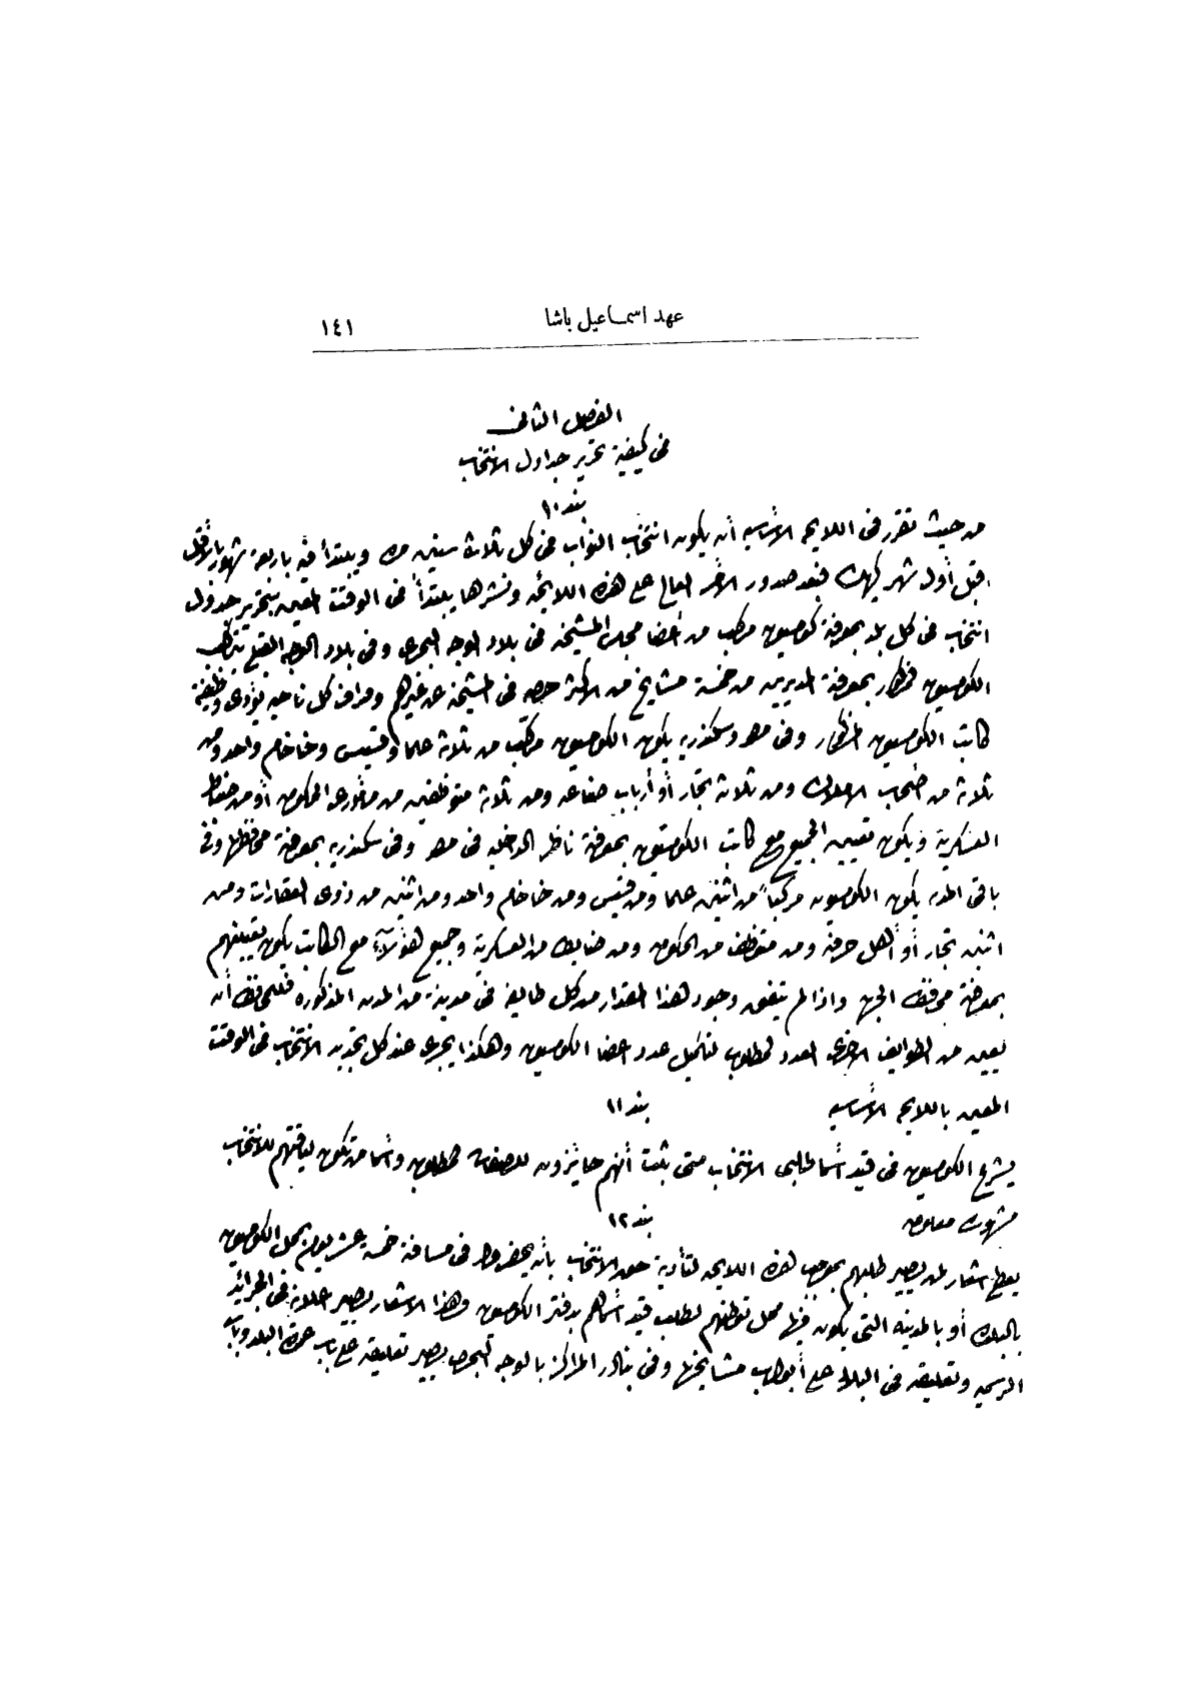 عهد اسماعيل باشا
١٤١
الفصل الثانى
فى كيفية تحرير جداول الانتخاب
بند ١٠
من حيث تقرر فى اللايحه الأساسيه أنه يكون انتخاب النواب فى كل ثلاث سنين مره ويبتدأ فيه باربعة شهور بالأقل
قبل أول شهر كيهك فبعد صدور الأمر العالى على هذه اللائحه ونشرها يبتدأ فى الوقت المعين بتحرير جدول
انتخاب فى كل بلد بمعرفة كومسيون مركب من أعضا مجلس المشيخه فى بلاد الوجه البحرى وفى بلاد الوجه القبلى يتركب
الكومسيون المذكور بمعرفة المديرين من خمسة مشايخ من الاكثر حصه فى المشيخة عن غيرهم وصراف كل ناحيه يؤدى وظيفة
كاتب الكومسيون المذكور وفى مصر وسكندريه يكون الكومسيون مركب من ثلاثة علما وقسيس وخاخام واحد ومن
ثلاثة من أصحاب الاملاك ومن ثلاثة تجار أو أرباب صناعه ومن ثلاثة متوظفين من مأمورى الحكومه أو من ضباط
العسكرية ويكون تعيين الجميع مع كاتب الكومسيون بمعرفة ناظر الداخليه فى مصر وفى سكندريه بمعرفة محافظها وفى
باقى المدن يكون الكومسيون مركباً من اثنين علما ومن قسيس ومن خاخام واحد ومن اثنين من ذوى العقارات ومن
اثنين تجار أو أهل حرفه ومن متوظف من الحكومه ومن ضابط من العسكرية وجميع هؤلآء مع الكاتب يكون تعيينهم
بمعرفة محافظ الجهه واذا لم يتفق وجود هذا المقدار من كل طايفه فى مدينة من المدن المذكوره فللمحافظ أن
يعين من الطوايف الاخرى العدد المطلوب لتكميل عدد اعضا الكومسيون وهكذا يجرى عند كل تجديد الانتخاب فى الوقت
المعين باللايحه الأساسيه
بند ١١
يشرع الكومسيون فى قيد أسما طالبى الانتخاب متى ثبت أنهم حايزون للصفات المطلوبه وأسما من تكون لياقتهم للانتخاب
مشهوره معلومه
بند ١٢
يعطى اشعار لمن يصير طلبهم بموجب هذه اللايحه لتأدية حق الانتخاب بأن يحضروا فى مسافة خمسة عشر يوم بمحل الكومسيون
بالبلده أو بالمدينه التى يكون فيها محل توطنهم لطلب قيد أسماهم بدفتر الكومسيون وهذا الاشعار يصير اعلانه فى الجرائد
الرسميه وتعليقه فى البلاد على أبواب مشايخها وفى بنادر المراكز بالوجه البحرى يصير تعليقه على باب عمدة البلد وباب